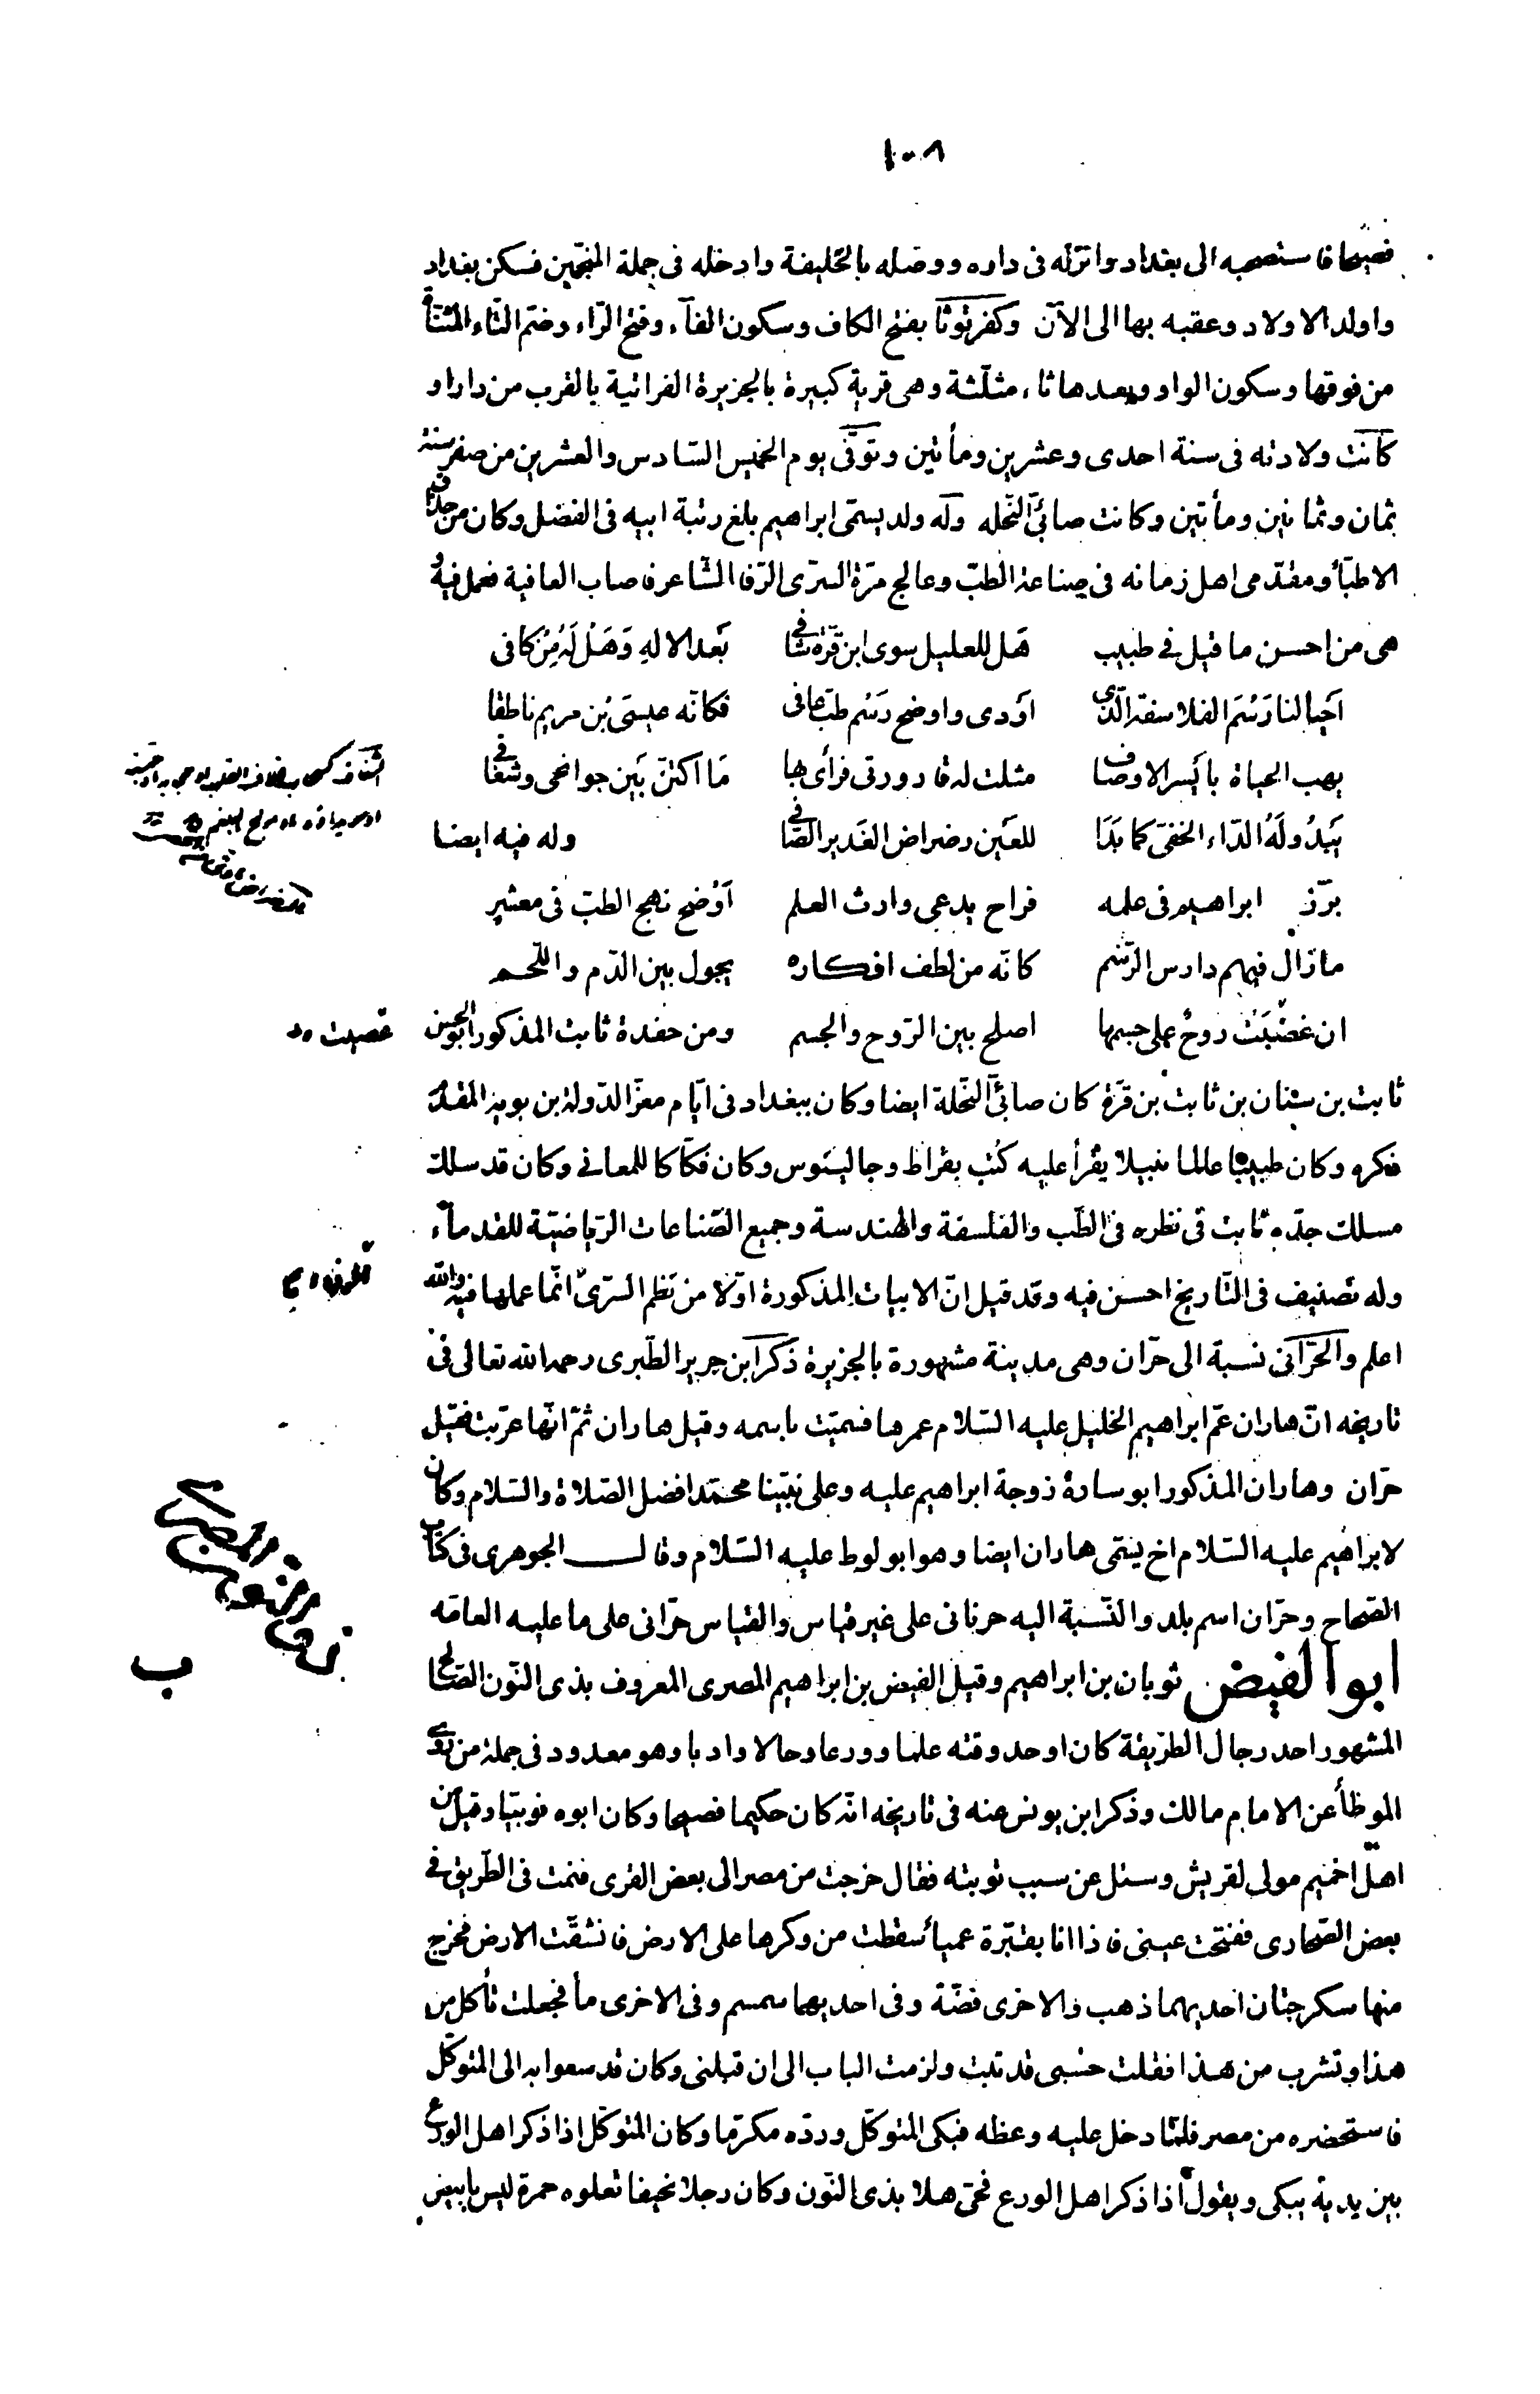 ١٠٨
فصيحا فاستصحبه الى بغداد وانزله فى داره ووصله بالخليفة وادخله فى جملة المنجمين فسكن بغداد
واولد الاولاد وعقبه بها الى الآن وكفرتوثا بفتح الكاف وسكون الفآء وفتح الرّاء وضم التاء المثنّاة
من فوقها وسكون الواو وبعدها ثاء مثلّثة وهى قرية كبيرة بالجزيرة الفراتية بالقرب من دارا و
كانت ولادته فى سنة احدى وعشرين ومأتين وتوفّى يوم الخميس السّادس والعشرين من صفر سنة
ثمان وثمانين ومأتين وكانت صابئىّ النّحله وله ولد يسمّى ابراهيم بلغ رتبة ابيه فى الفضل وكان من حذّاق
الاطبّأ ومقدّمى اهل زمانه فى صناعة الطبّ وعالج مرّة السّرى الرّفا الشّاعر فاصاب العافية فعمل فيه و
هى من احسن ما قيل فى طبيب هَل للعليل سوى ابن قرّة شافى بَعد الالهِ وَهَل لَهُ مِن كافى
اَحيا لنا رَسْمَ الفلاسفة الّذى اَودى واوضح رَسْم طبّ عافى فكانّه عيسَى بْن مريم ناطقا
يهب الحياة بايسر الاوصاف مثلت له قارورتى فرأى بها مَا اكتنّ بَين جوانحى وشغافى
يَبدُو لَهُ الدّاء الخفىّ كما بَدَا للعَين رضراض الغَدير الصّافى وله فيه ايضا
برّز ابراهيم فى علمه فراح يدعى وارث العلم اَوْضح نهج الطبّ فى معشر
مازال فيهم دارس الرّسم كانّه من لطف افكاره يجول بين الدّم واللّحم
ان غضبَتْ روحٌ على جسمها اصلح بين الرّوح والجسم ومن حفدة ثابت المذكور ابو الحسن
ثابت بن سنان بن ثابت بن قرّة كان صابئىّ النّحلة ايضا وكان ببغداد فى ايّام معزّ الدّولة بن بويه المقدّم
ذكره وكان طبيبا عالما نبيلا يقرأ عليه كتب بقراط وجالينوس وكان فكّاكا للمعانى وكان قد سلك
مسلك جدّه ثابت فى نظره فى الطّب والفلسفة والهندسة وجميع الصّناعات الرّياضيّة للقدمآء
وله تصنيف فى التّاريخ احسن فيه وقد قيل انّ الابيات المذكورة اوّلا من نظم السّرىّ انّما عملها فيه والله
اعلم والحرّانى نسبة الى حرّان وهى مدينة مشهورة بالجزيرة ذكر ابن جرير الطّبرى رحمه الله تعالى فى
تاريخه انّ هاران عمّ ابراهيم الخليل عليه السّلام عمرها فسمّيت باسمه وقيل هاران ثمّ انّها عرّبت فقيل
حرّان وهاران المذكور ابو سارة زوجة ابراهيم عليه وعلى نبيّنا محمّد افضل الصّلاة والسّلام وكان
لابراهيم عليه السّلام اخ يسمّى هاران ايضا وهو ابو لوط عليه السّلام وقال الجوهرى فى كتاب
الصّحاح وحرّان اسم بلد والنّسبة اليه حرنانى على غير قياس والقياس حرّانى على ما عليه العامّه
ابو الفيض ثوبان بن ابراهيم وقيل الفيض بن ابراهيم المصرى المعروف بذى النّون الصّالح
المشهور احد رجال الطّريقة كان اوحد وقته علما وورعا وحالا وادبا وهو معدود فى جملة من روى
الموطّأ عن الامام مالك وذكر ابن يونس عنه فى تاريخه انّه كان حكيما فصيحا وكان ابوه نوبيّا وقيل من
اهل اخميم مولى لقريش وسئل عن سبب توبته فقال خرجت من مصر الى بعض القرى فنمت فى الطّريق فى
بعض الصّحارى ففتحت عينى فاذا انا بقنبّرة عميأ سقطت من وكرها على الارض فانشقّت الارض فخرج
منها سكرجتان احديهما ذهب والاخرى فضّة وفى احديهما سمسم وفى الاخرى مأ فجعلت تأكل من
هذا وتشرب من هذا فقلت حسبى قد تبت ولزمت الباب الى ان قبلنى وكان قد سعوا به الى المتوكّل
فاستحضره من مصر فلمّا دخل عليه وعظه فبكى المتوكّل وردّه مكرّما وكان المتوكّل اذا ذكر اهل الورع
بين يديه يبكى ويقول اذا ذكر اهل الورع فحىّ هلا بذى النّون وكان رجلا نحيفا تعلوه حمرة ليس بابيض